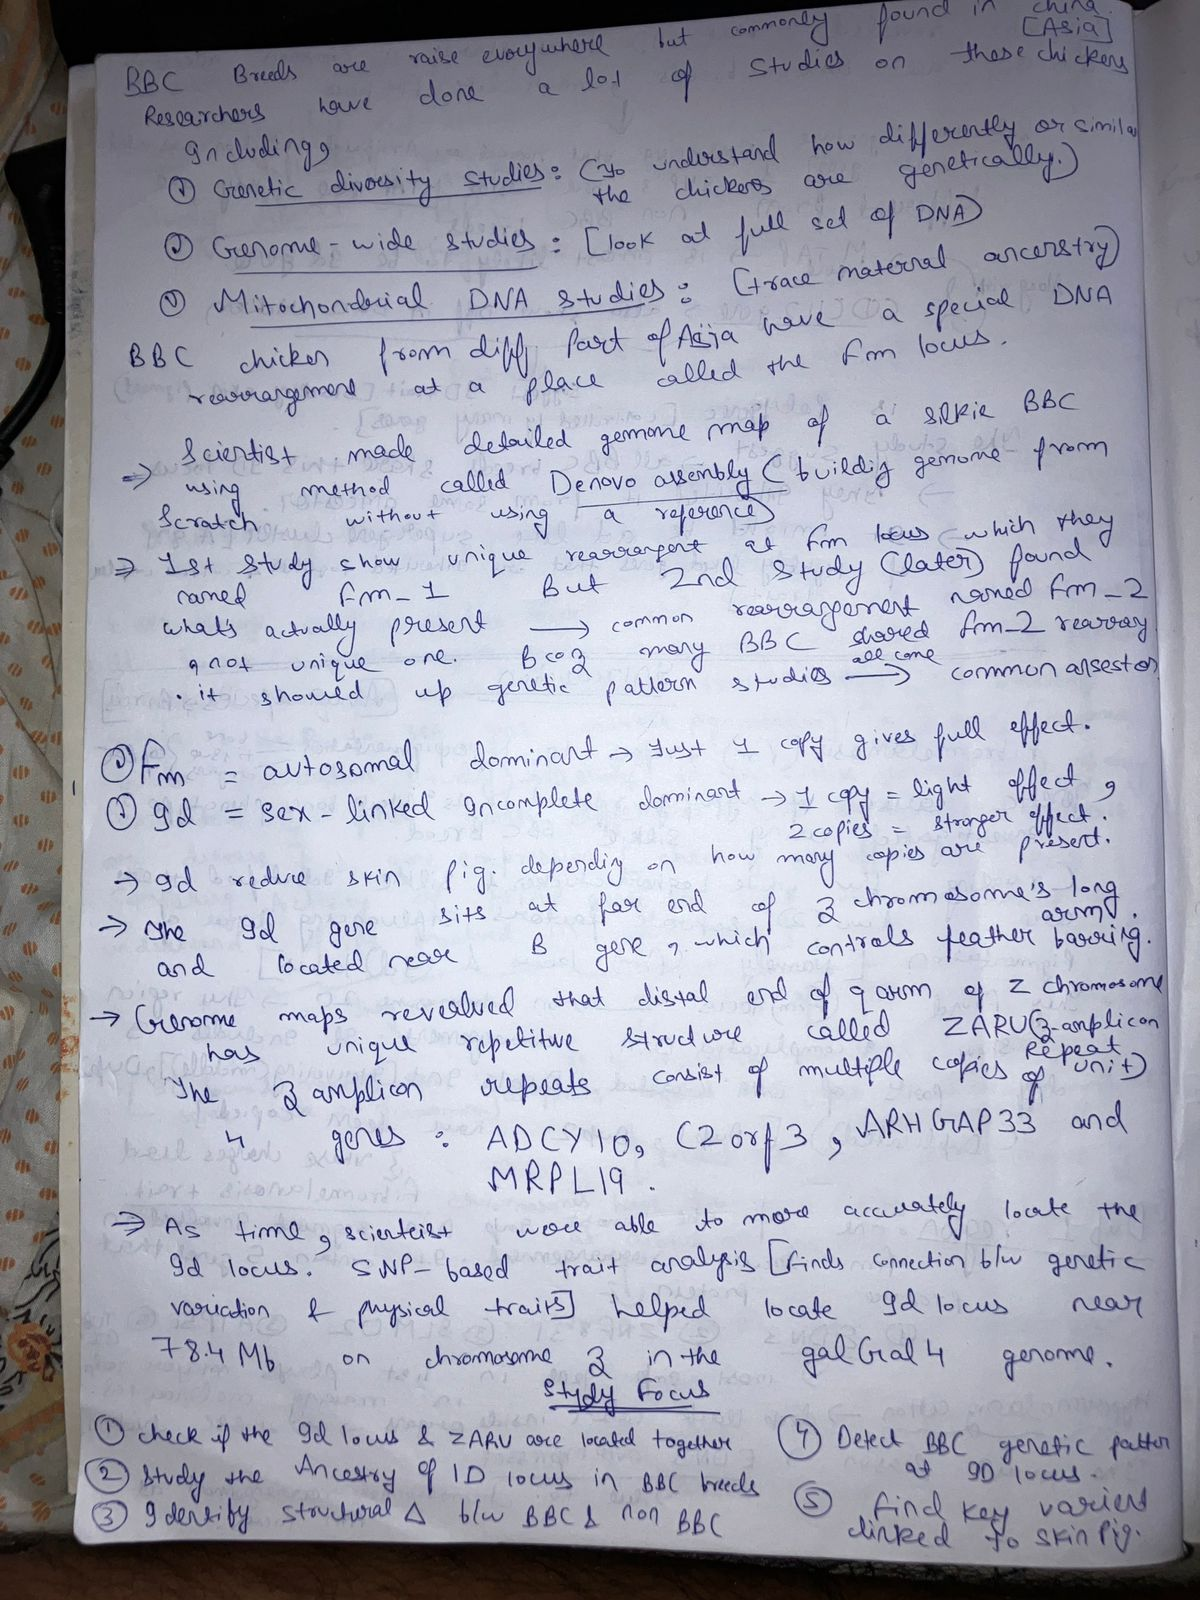 BBC Breeds are raise everywhere but commonly found in china.
[Asia]
Researchers have done a lot of studies on these chickens
Including,
① Genetic diversity studies: (to understand how differently or similar
the chickens are genetically.)
② Genome-wide studies: [look at full set of DNA)
③ Mitochondrial DNA studies: (trace maternal ancerstry)
BBC chicken from diff. Part of Asia have a special DNA
rearrangement at a place called the Fm locus.
⇒ Scientist made detailed genome map of a silkie BBC
using method called Denovo assembly (buildig genome from
Scratch without using a reference)
⇒ 1st study show unique rearrangent at Fm locus (which they
named Fm_1 But 2nd study (later) found
what's actually present → common rearrangement named Fm_2
, not unique one. Bcoz many BBC shared Fm_2 rearray
. it showed up genetic pattern studies → all come common ansestor
① Fm = autosomal dominant → Just 1 copy gives full effect.
① Id = sex-linked Incomplete dominant → 1 copy = light effect,
2 copies = stronger effect.
→ Id reduce skin pig. dependig on how many copies are present.
→ The Id gene sits at far end of Z chromosome's long
arm.
and located near B gene, which controls feather barring.
→ Genome maps reverlved that distal end of q arm of Z chromosome
has unique repetitive structure called ZARU(Z-amplicon
Repeat
unit)
The Z amplicon repeats consist of multiple copies of
4 genes: ADCY10, C2orf3, ARHGAP33 and
MRPL19.
⇒ As time, scienteist were able to more accurately locate the
Id locus. SNP-based trait analysis [finds connection b/w genetic
variation & physical traits] helped locate Id locus near
78.4 Mb on chromosome Z in the galGal4 genome.
Study Focus
① check if the Id locus & ZARU are located together
② Study the Ancestry of ID locus in BBC breeds
③ Identify structural Δ b/w BBC & non BBC
④ Detect BBC genetic patter
at ID locus.
⑤ find key varient
linked to skin pig.